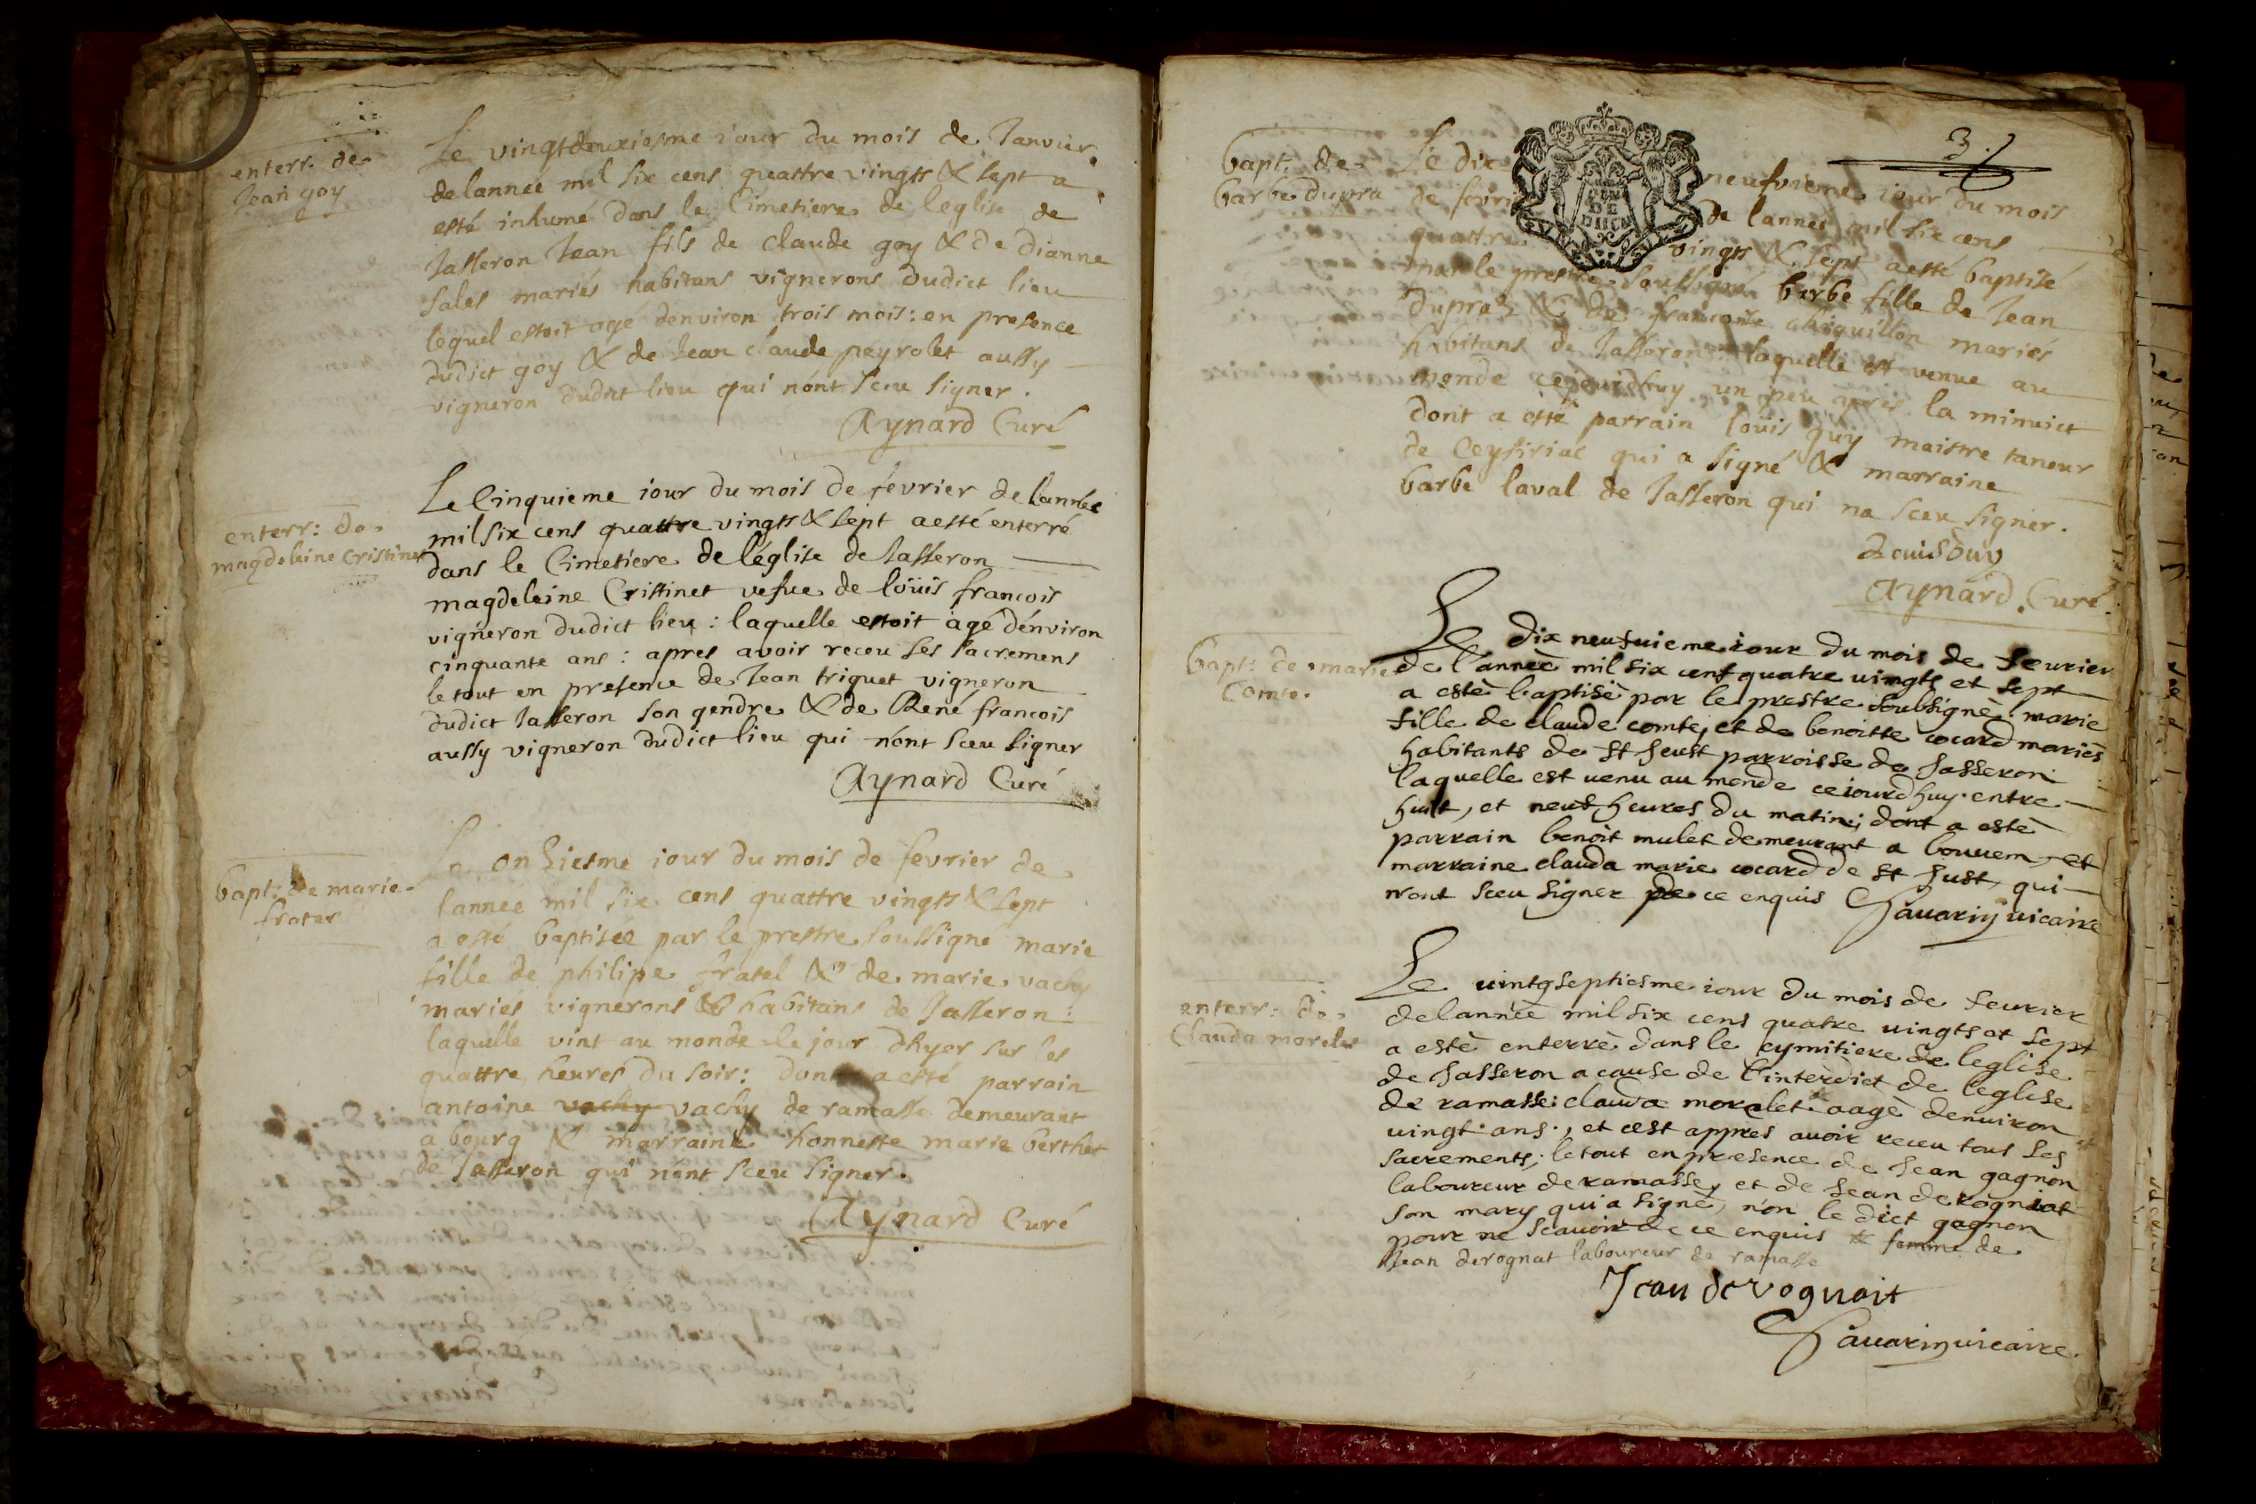 enterr. de
Jean goy
Le vingtdeuxiesme iour du mois de Janvier
delannée mil six cens quattre vingts & sept a
esté inhumé dans le Cimetiere de leglise de
Jasseron Jean fils de Claude goy & de Dianne
sales mariés habitans vignerons dudict lieu
lequel estoit agé denviron trois mois : en presence
dudict goy & de Jean claude peyrolet aussy
vigneron dudict lieu qui nónt sceu signer .
Aynard Curé
enterr : de
magdeleine Cristinet
Le Cinquieme iour du mois de fevrier de lannée
mil six cens quattre vingts & sept aesté enterré
dans le Cimetiere de léglise de Jasseron
magdeleine Cristinet vefue de loüis francois
vigneron dudict lieu : laquelle estoit agé dénviron
cinquante ans : apres avoir receu ses sacremens
le tout en presence de Jean triquet vigneron
dudict Jasseron son gendre & de René francois
aussy vigneron dudict lieu qui nónt sceu signer
Aynard Curé
bapt : de marie
frater
Le onziesme iour du mois de fevrier de
lannee mil six cens quattre vingts & sept
a esté baptisee par le prestre soussigné marie
fille de philipe fratel & de marie vachy
mariés vignerons & habitans de Jasseron :
laquelle vint au monde le jour dhyer sur les
quattre heures du soir : dont a esté parrain
antoine vachy vachy de ramasse demeurant
a bourg & marraine honneste marie berthet
de Jasseron qui nónt sceu signer .
Aynard Curé
3.
bapt : de
barbe dupra
Le dix neufvieme iour du mois
de fevri de lannee mil six cens
quattre vingts & sept aesté baptisé
par le prestre soussigné barbe fille de Jean
dupraz & de francoise chiquillon mariés
habitans de Jasseron : laquelle est venue au
monde cejourdhuy un peu apres la minuict
dont a esté parrain loüis guy maistre taneur
de Ceysiriac qui a signé & marraine
barbe laval de Jasseron qui na sceu signer .
Aynard . Curé .
bapt : de marie
Comte .
Le dix neufuieme iour du mois de feurier
de l'année mil six cens quatre uingts et sept
a esté baptisé par le prestre soubsigné marie
fille de claude comte, et de benoitte cocard mariés
habitants de st Just parroisse de Jasseron
laquelle est uenu au monde ceiourdhuy entre
huit, et neuf heures du matin; dont a esté
parrain benoit mulet demeurant a bouuem et
marraine clauda marie cocard de st Just, qui
n'ont sceu signer de ce enquis Sauarin uicaire
enterr : de
Clauda morelet
Le uintgseptiesme iour du mois de feurier
delannéé mil six cens quatre uingts et sept
a esté enterré dans le cymitiere de leglise
de Jasseron a cause de l'interdict de leglise
de ramasse; clauda moralet aagé denuiron
uingt ans ., et cest appres auoir receu tous ses
sacrements; le tout en presence de Jean gagnon
laboureur de ramasse, et de Jean derogniat
son mary qui a signé, non le dict gagnon
pour ne scauoir de ce enquis & femme de
Jean derognat laboureur de ramasse
Jean derognait
Sauarin uicaire .